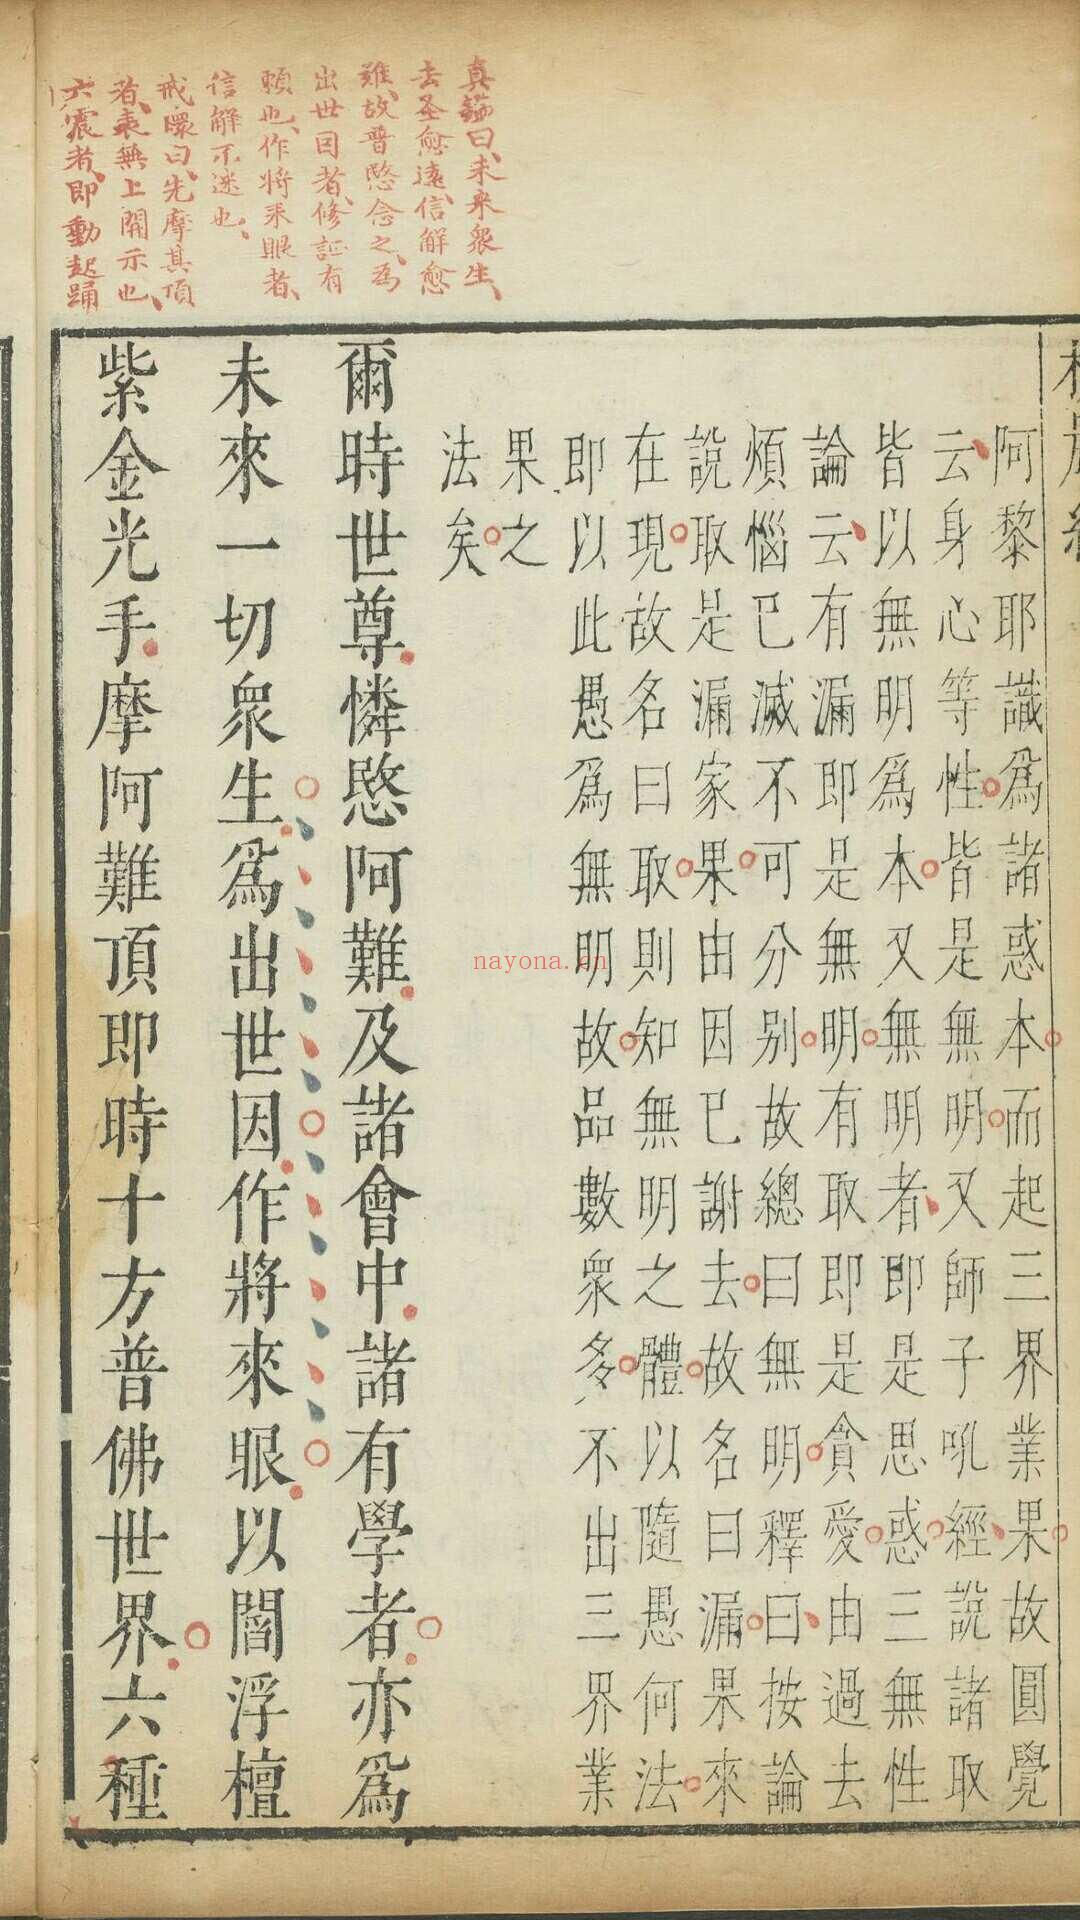 真鑑曰、未來衆生、
去圣愈遠、信解愈
難、故普愍念之、爲
出世因者、修証有
賴也、作將來眼者、
信解不迷也、
戒環曰、先摩其頂
者、表無上開示也、
六震者、即動起踊
阿黎耶識爲諸惑本而起三界業果故圓覺
云身心等性皆是無明又師子吼經說諸取
皆以無明爲本又無明者即是思惑三無性
論云有漏即是無明有取即是貪愛由過去
煩惱已滅不可分别故總曰無明釋曰按論
說取是漏家果由因已謝去故名曰漏果來
在現故名曰取則知無明之體以隨愚何法
即以此愚爲無明故品數衆多不出三界業
果之
法矣
爾時世尊憐愍阿難及諸會中諸有學者亦爲
未來一切衆生爲出世因作將來眼以閻浮檀
紫金光手摩阿難頂即時十方普佛世界六種
nayona.cn